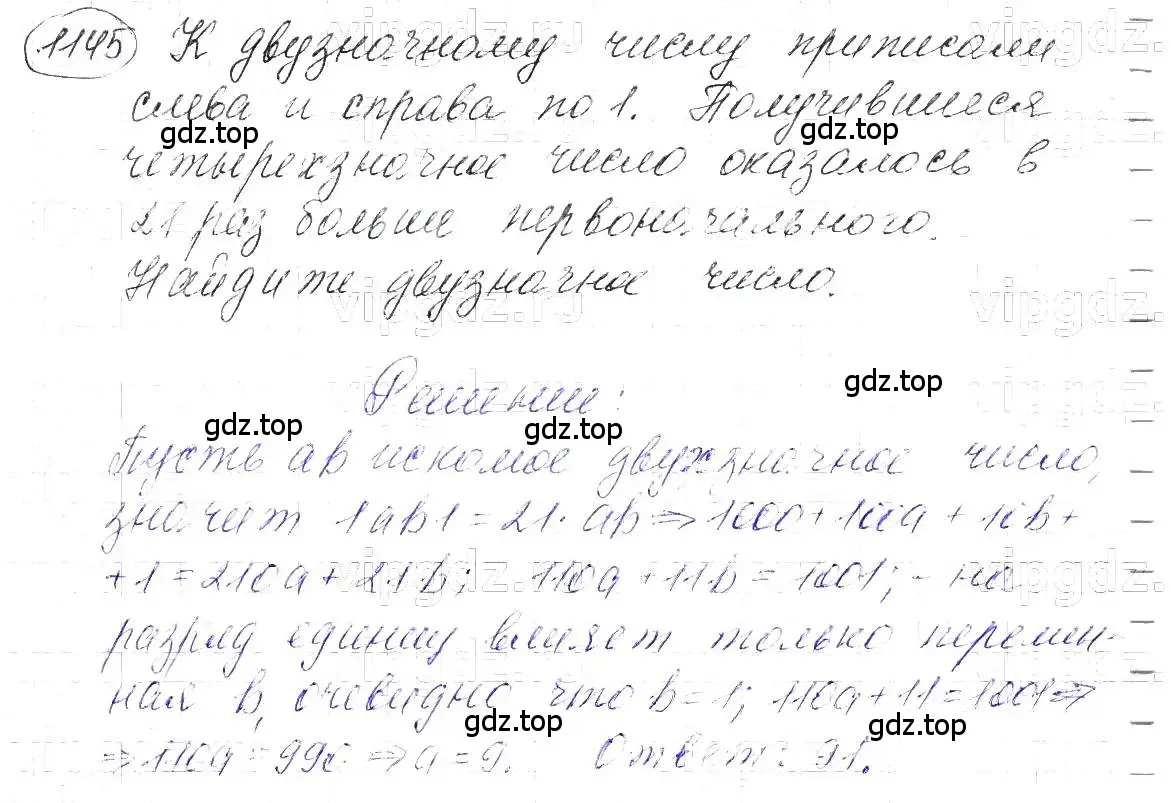 1145 К двузначному числу приписали
слева и справа по 1. Получившиеся
gdz.top gdz.top
четырехзначное число оказалось в
21 раз больше первоначального.
Найдите двузначное число.
vipgdz.ru vipgdz
Решение:
gdz.top
gdz.top gdz.top
Пусть ab искомое двухзначное число,
значит 1ab1 = 21·ab ⇒ 1000 + 100a + 10b +
+ 1 = 210a + 21·b; 110a + 11b = 1001; - на
разряд единиц влияет только перемен-
ная b, очевидно что b = 1; 110a + 11 = 1001 ⇒
gdz.top gdz.top
⇒ 110a = 990 ⇒ a = 9. Ответ: 91.